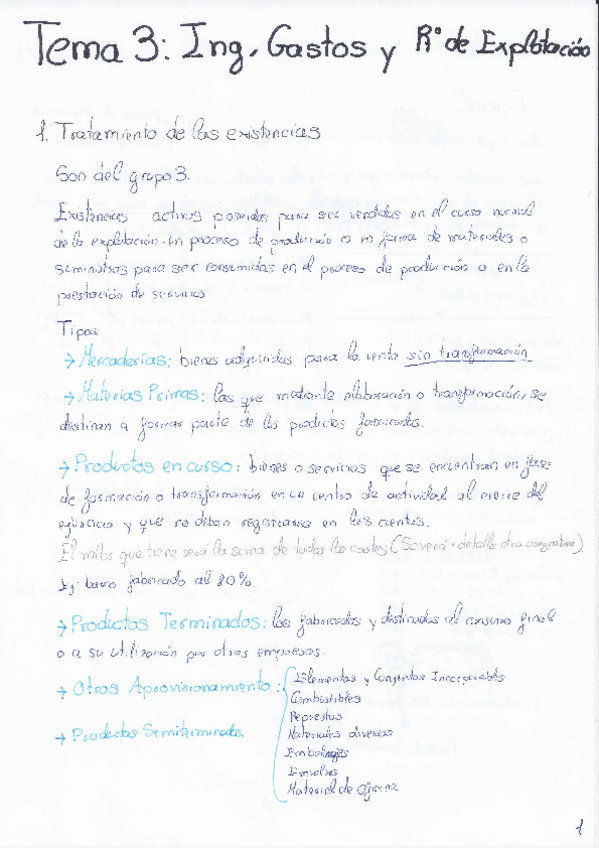 Tema 3: Ing, Gastos y Rº de Explotación
1. Tratamiento de las existencias
Son del grupo 3.
Existencias activos poseidos para ser vendidos en el curso normal
de la explotación, en proceso de producción o en forma de materiales o
suministros para ser consumidos en el proceso de producción o en la
prestación de servicios
Tipos
→ Mercaderías: bienes adquiridos para la venta sin transformación
→ Materias Primas: las que mediante elaboración o transformación, se
destinan a formar parte de los productos fabricados.
→ Productos en curso: bienes o servicios que se encuentran en fase
de formación o transformación en un centro de actividad al cierre del
ejercicio y que no deban registrarse en las cuentas.
El valor que tiene será la suma de todos los costes (Se verá + detalle otra asignatura)
Ej: barco fabricado al 80%.
→ Productos Terminados: los fabricados y destinados al consumo final
o a su utilización por otras empresas.
→ Otros Aprovisionamiento: Elementos y Conjuntos Incorporables
Combustibles
Repuestos
→ Productos Semiterminados Materiales diversos
Embalajes
Envases
Material de oficina
1